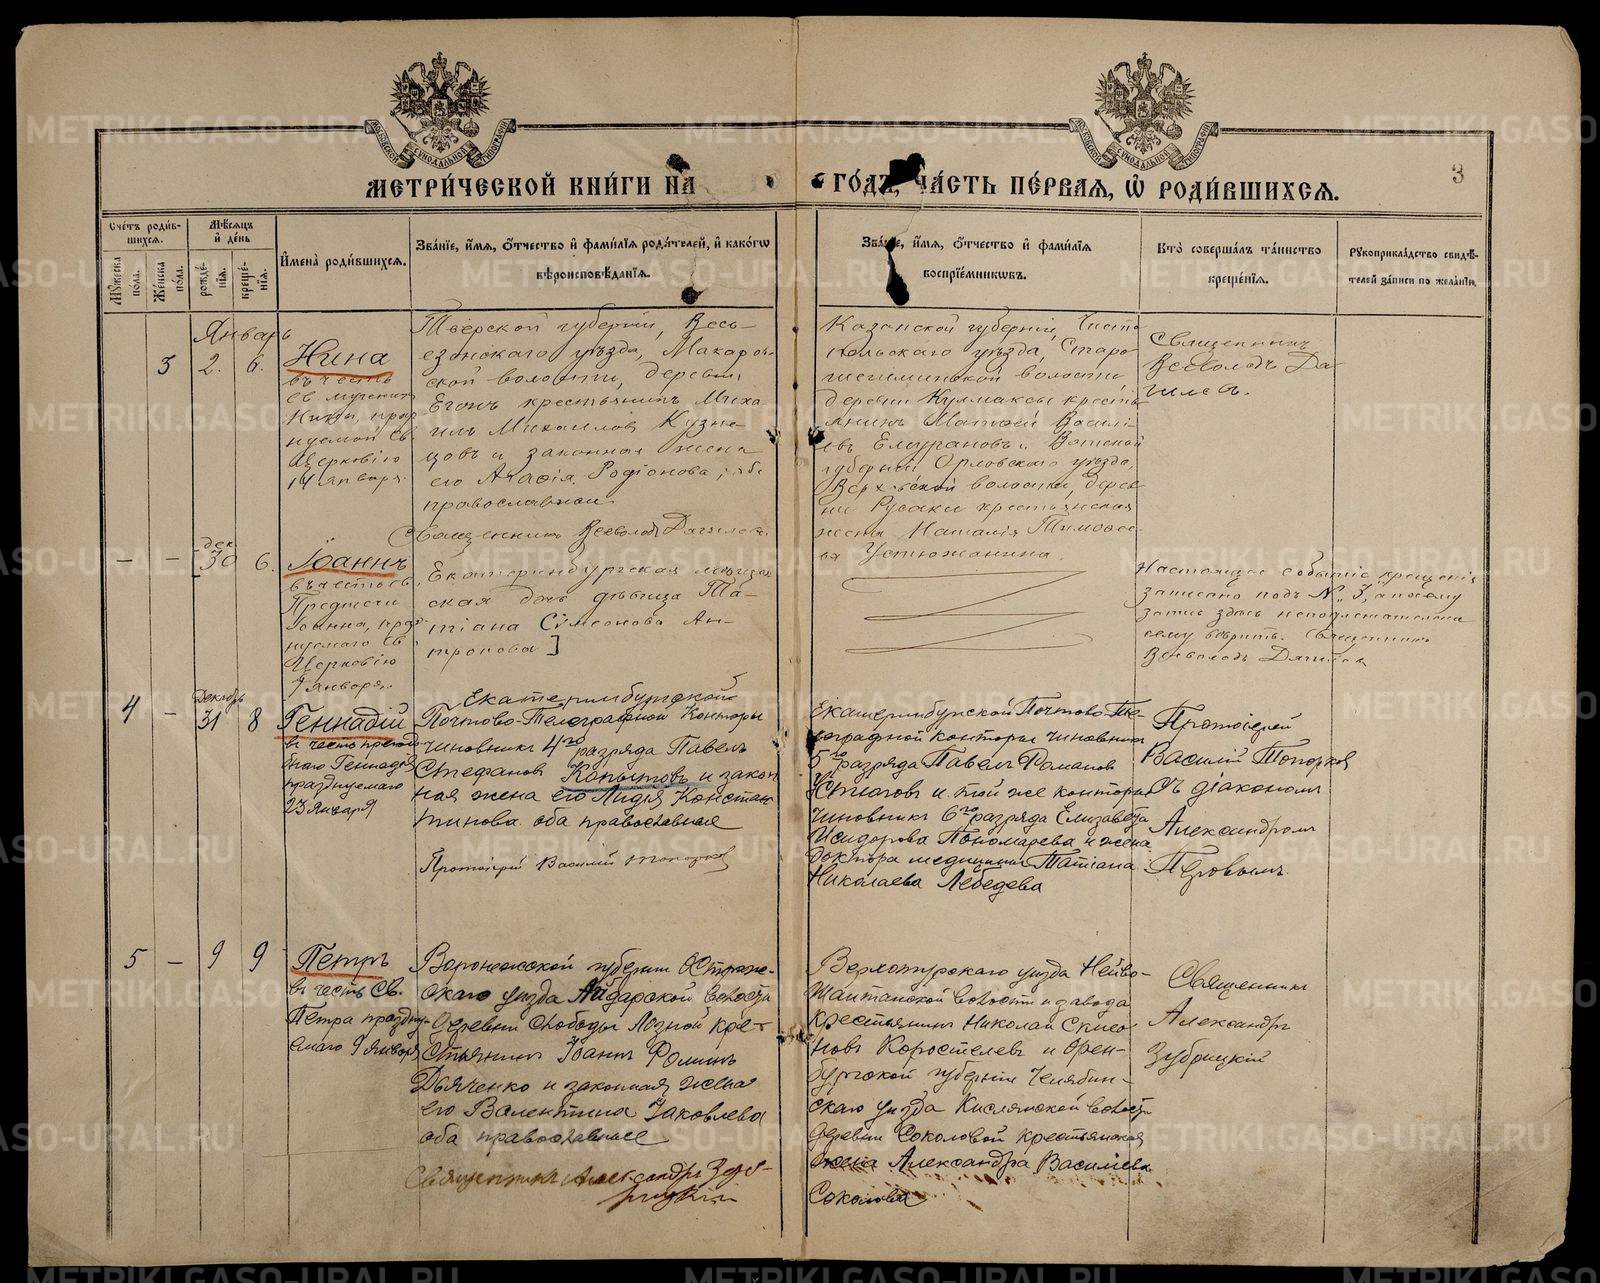 МЕТРИ́ЧЕСКОЙ КНИ́ГИ НА
ГО́ДЪ, ЧА́СТЬ ПЕ́РВАЯ, Ѡ҆ РОДИ́ВШИХСЯ.
3
Сче́тъ роди́в-
шихся.
Мѣ́сяцъ
и҆ де́нь
Му́жеска
по́ла.
Же́нска
по́ла.
рожде́-
нія.
креще́-
нія.
И҆мена̀ роди́вшихся.
Зва́ніе, и҆́мя, ѻ҆́тчество и҆ фами́лія роди́телей, и҆ како́гѡ
вѣроисповѣ́данія.
Зва́ніе, и҆́мя, ѻ҆́тчество и҆ фами́лія
воспріе́мниковъ.
Кто̀ соверша́лъ та́инство
креще́нія.
Рꙋкоприкла́дство свидѣ́-
телей за́писи по жела́нію.
Январь
3 2. 6.
Нина
въ честь
св. мучениц
Нины, праз
нуемой св.
Церковію
14 января.
Тверской губерніи, Весь-
егонскаго уѣзда, Макаров-
ской волости, деревни
крестьянинъ Миха
илъ Михаиловъ Кузне
цовъ и законная жена
его Агафія Родіонова; оба
православные
Священникъ Всеволодъ Дягилевъ.
Казанской губерніи, Чисто
польскаго уѣзда, Старо
волости
деревни Кулмаксы кресть
янинъ Матвей Василі
евъ и Вятской
губерніи Орловскаго уѣзда,
волости, дерев
ни Русаки крестьянская
жена Наталія Тимофее
ва Устюжанина.
Священникъ
Всеволодъ Дя-
гилевъ.
— — дек. 30 6.
Іоаннъ
въ честь
Предтечи
Іоанна, праз
нуемаго св.
Церковію
7 января.
Екатеринбургская мѣщан
ская дочь дѣвица Та-
тіана Сѵмеонова Ан-
тропова]
Настоящее событіе крещенія
записано подъ № 3, а потому
запись здѣсь
сему вѣрить. Священникъ
Всеволодъ Дягилевъ
4 — Декабрь 31 8
Геннадій
въ честь препод
бнаго Геннадія
празднуемаго
23 Января
Екатеринбургской
Почтово-Телеграфной Конторы
чиновникъ 4го разряда Павелъ
Стефановъ Копытовъ и закон
ная жена его Лидія Констан
тинова оба православные
Протоіерей Василій Топорковъ
Екатеринбургской Почтово-Те-
леграфной конторы чиновникъ
5го разряда Павелъ Романовъ
Устюговъ и той же конторы
чиновникъ 6го разряда Елизавета
Исидорова Пономарева и жена
доктора медицины Татіана
Николаева Лебедева
Протоіерей
Василій Топорков
съ діакономъ
Александромъ
Перовымъ.
5 — 9 9
Петръ
въ честь Св.
Петра праздну-
емаго 9 Января
Воронежской губерніи Острож-
скаго уѣзда Айдарской волости
деревни слободы Лозной кре-
стьянинъ Іоаннъ Фоминъ
Дьяченко и законная жена
его Валентина Іаковлева
оба православные
Священникъ Александръ Зуб-
рицкій
Верхотурскаго уѣзда Нейво-
Шайтанской волости и завода
крестьянинъ Николай
новъ Коростелевъ и Орен-
бургской губерніи Челябин-
скаго уѣзда Кислянской волости
деревни Соколовой крестьянская
жена Александра Василіева
Соколова
Священникъ
Александръ
Зубрицкій
METRIKI.GASO-URAL.RU